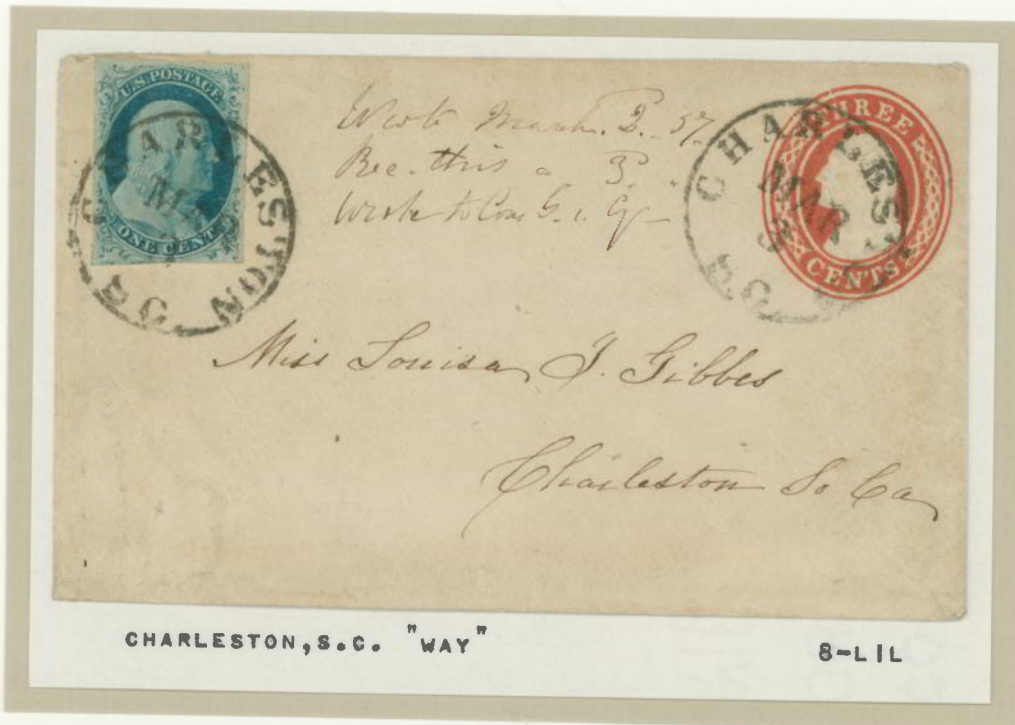 U.S. POSTAGE
ONE CENT
CHARLESTON
MAR
S.C
Wrote March. 2. 57.
Rec. this " 3
Wrote to
THREE
CENTS
CHARLESTON
MAR
3
S.C
Miss Louisa J. Gibbes
Charleston So Ca
CHARLESTON, S.C. "WAY"
8-LIL